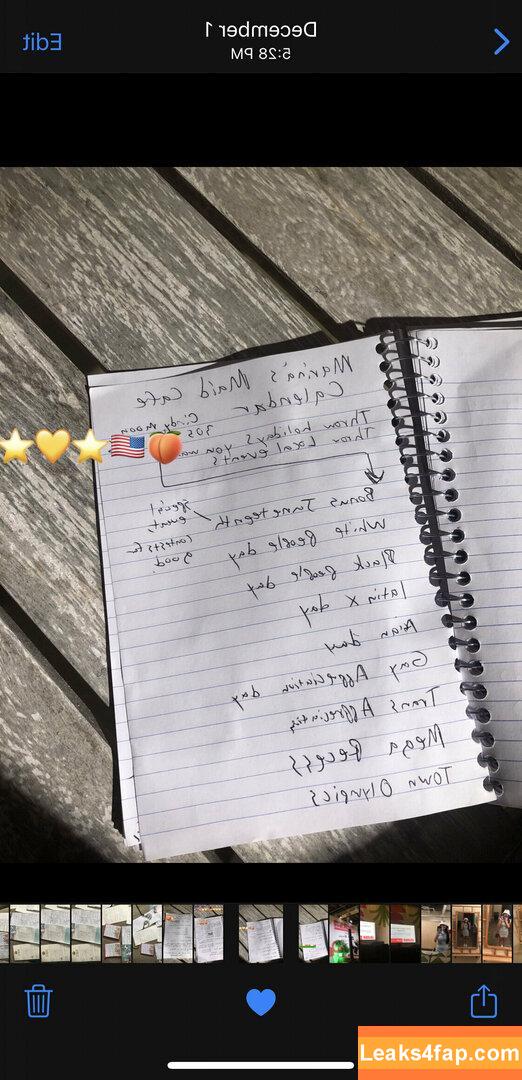 December 1
5:28 PM
Edit
Marina's Maid Cafe
Calendar
Cindy Moon
305
Throw holidays you
Throw Local events
Bonus Juneteenth
special
event
contests for
good
White people day
Black people day
latin x day
Asian day
Gay Appreciation day
Trans Appreciation
Mega Recess
Town Olympics
Leaks4fap.com